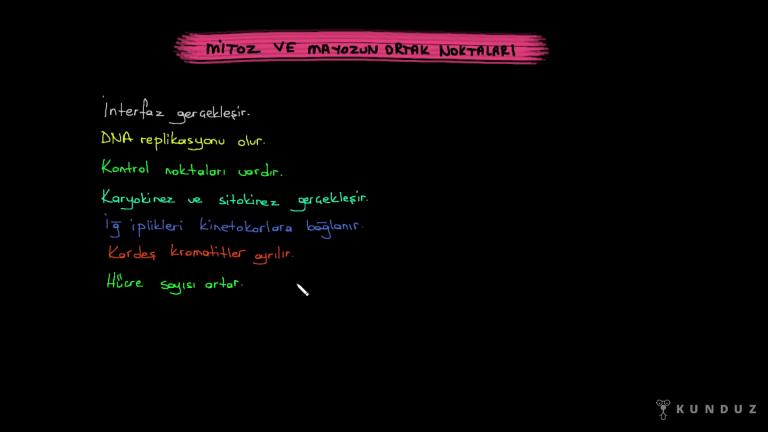 MİTOZ VE MAYOZUN ORTAK NOKTALARI
İnterfaz gerçekleşir.
DNA replikasyonu olur.
Kontrol noktaları vardır.
Karyokinez ve sitokinez gerçekleşir.
İğ iplikleri kinetokorlara bağlanır.
Kardeş kromatitler ayrılır.
Hücre sayısı artar.
KUNDUZ